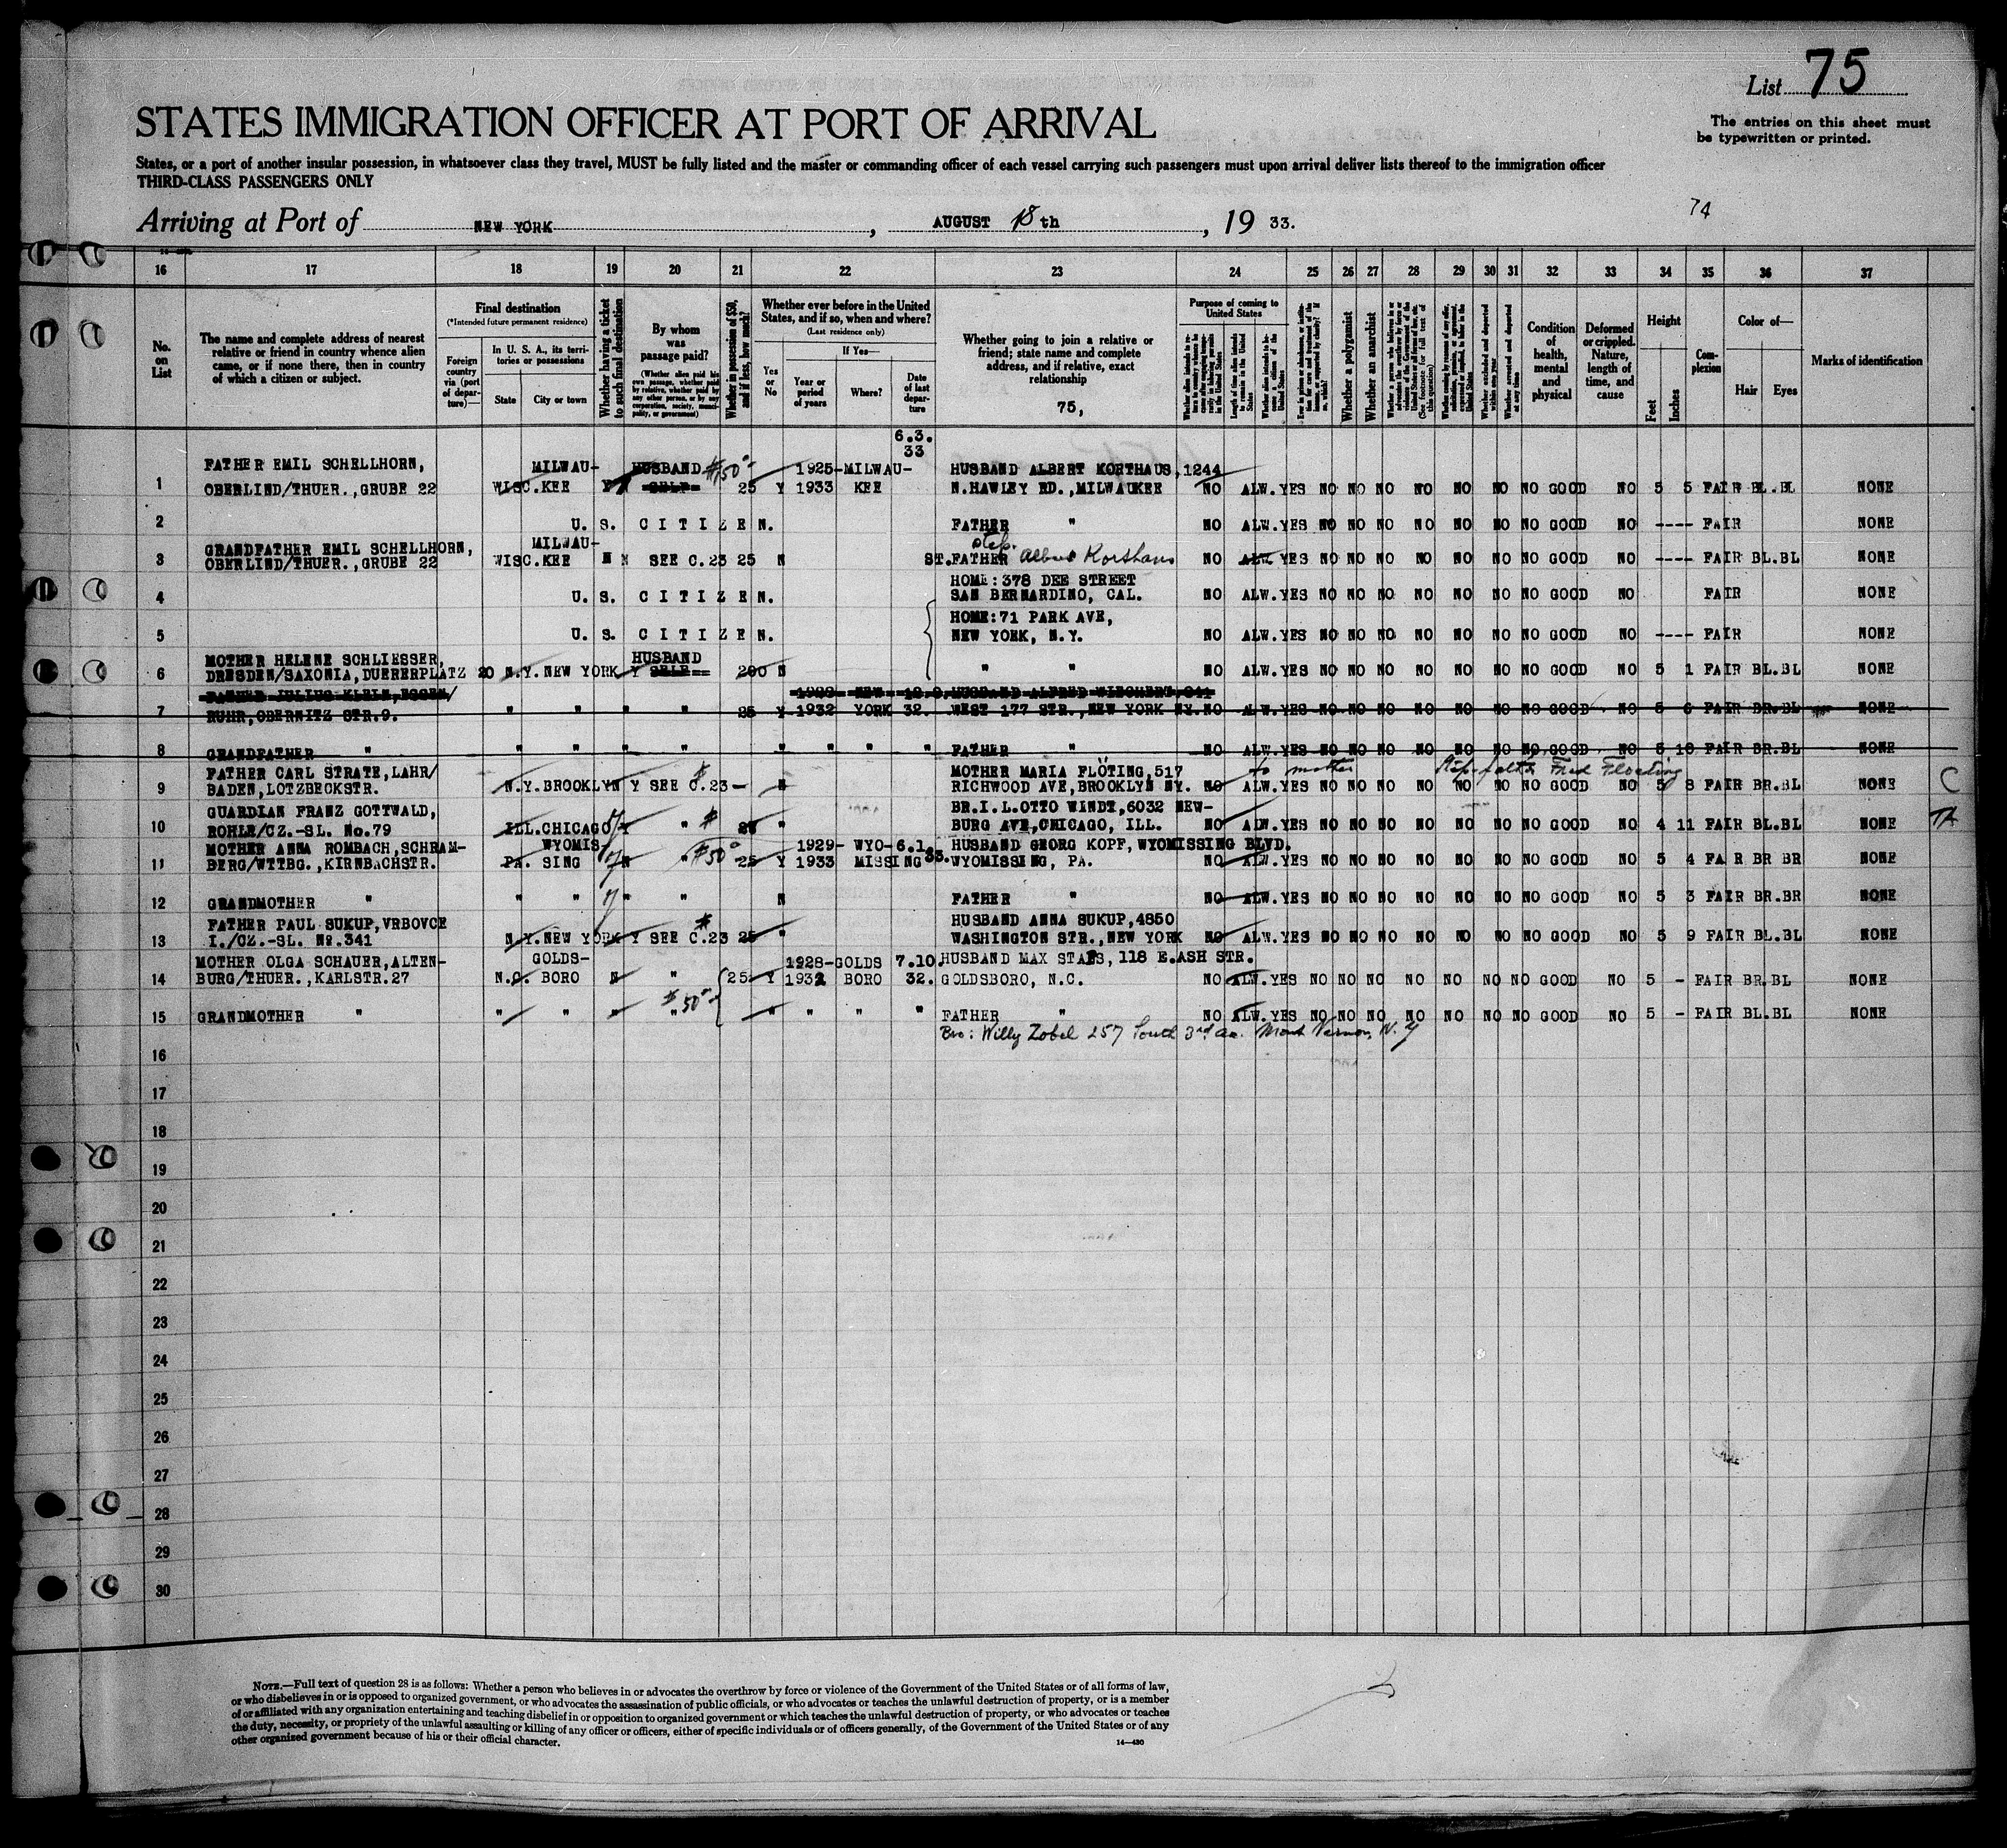 List 75
STATES IMMIGRATION OFFICER AT PORT OF ARRIVAL
The entries on this sheet must
be typewritten or printed.
States, or a port of another insular possession, in whatsoever class they travel, MUST be fully listed and the master or commanding officer of each vessel carrying such passengers must upon arrival deliver lists thereof to the immigration officer
THIRD-CLASS PASSENGERS ONLY
74
Arriving at Port of NEW YORK, AUGUST 18th, 19 33.
16 17 18 19 20 21 22 23 24 25 26 27 28 29 30 31 32 33 34 35 36 37
No. on List
The name and complete address of nearest relative or friend in country whence alien came, or if none there, then in country of which a citizen or subject.
Final destination
(*Intended future permanent residence)
Foreign country via (port of departure)—
In U. S. A., its territories or possessions
State
City or town
Whether having a ticket to such final destination
By whom was passage paid?
(Whether alien paid his own passage, whether paid by relative, whether paid by any other person, or by any corporation, society, municipality, or government)
Whether in possession of $50, and if less, how much?
Whether ever before in the United States, and if so, when and where?
(Last residence only)
Yes or No
If Yes—
Year or period of years
Where?
Date of last departure
Whether going to join a relative or friend; state name and complete address, and if relative, exact relationship
75,
Purpose of coming to United States
Whether a polygamist
Whether an anarchist
Condition of health, mental and physical
Deformed or crippled. Nature, length of time, and cause
Height
Feet
Inches
Complexion
Color of—
Hair
Eyes
Marks of identification
6.3.
33
FATHER EMIL SCHELLHORN, MILWAU- HUSBAND $50- 1925-MILWAU- HUSBAND ALBERT KORTHAUS, 1244
1 OBERLIND/THUER., GRUBE 22 WISC. KEE SELF 25 Y 1933 KEE N.HAWLEY RD., MILWAUKEE NO ALW. YES NO NO NO NO NO NO NO GOOD NO 5 5 FAIR BL. BL NONE
2 U. S. CITIZEN. FATHER " NO ALW. YES NO NO NO NO NO NO NO GOOD NO ---- FAIR NONE
GRANDFATHER EMIL SCHELLHORN, MILWAU- step.
3 OBERLIND/THUER., GRUBE 22 WISC. KEE N SEE C.23 25 N ST. FATHER Albert Korthaus NO ALW YES NO NO NO NO NO NO NO GOOD NO ---- FAIR BL. BL NONE
HOME: 378 DEE STREET
4 U. S. CITIZEN. SAN BERNARDINO, CAL. NO ALW. YES NO NO NO NO NO NO NO GOOD NO FAIR NONE
HOME: 71 PARK AVE,
5 U. S. CITIZEN. NEW YORK, N.Y. NO ALW. YES NO NO NO NO NO NO NO GOOD NO ---- FAIR NONE
MOTHER HELENE SCHLIESSER, HUSBAND
6 DRESDEN/SAXONIA, DUERERPLATZ 20 N.Y. NEW YORK Y SELF 200 N " " NO ALW. YES NO NO NO NO NO NO NO GOOD NO 5 1 FAIR BL. BL NONE
FATHER JULIUS KLEIN, ESSEN/
7 RUHR, OBERNITZ STR. 9. " " " " 25 Y 1932 YORK 32. WEST 177 STR., NEW YORK NY. NO ALW. YES NO NO NO NO NO NO NO GOOD NO 5 6 FAIR BR. BL NONE
8 GRANDFATHER " " " " " " " " " FATHER " NO ALW. YES NO NO NO NO NO NO NO GOOD NO 5 10 FAIR BR. BL NONE
FATHER CARL STRATE, LAHR/ MOTHER MARIA FLÖTING, 517 to mother Step-father Fred Floeting
9 BADEN, LOTZBECKSTR. N.Y. BROOKLYN Y SEE C.23 - N RICHWOOD AVE, BROOKLYN NY. NO ALW. YES NO NO NO NO NO NO NO GOOD NO 5 8 FAIR BR. BL NONE C
GUARDIAN FRANZ GOTTWALD, BR. I. L. OTTO WINDT, 6032 NEW-
10 ROHLE/CZ.-SL. No. 79 ILL. CHICAGO Y " 25 " BURG AVE, CHICAGO, ILL. NO ALW. YES NO NO NO NO NO NO NO GOOD NO 4 11 FAIR BL. BL NONE
MOTHER ANNA ROMBACH, SCHRAM- WYOMIS- $50- 1929- WYO- 6.1. HUSBAND GEORG KOPF, WYOMISSING BLVD.
11 BERG/WTTBG., KIRNBACHSTR. PA. SING N " 25 Y 1933 MISSING 33. WYOMISSING, PA. NO ALW. YES NO NO NO NO NO NO NO GOOD NO 5 4 FAIR BR BR NONE
12 GRANDMOTHER " " " " " N FATHER " NO ALW. YES NO NO NO NO NO NO NO GOOD NO 5 3 FAIR BR. BR NONE
FATHER PAUL SUKUP, VRBOVCE HUSBAND ANNA SUKUP, 4850
13 I./CZ.-SL. No. 341 N.Y. NEW YORK Y SEE C.23 25 " WASHINGTON STR., NEW YORK NO ALW. YES NO NO NO NO NO NO NO GOOD NO 5 9 FAIR BL. BL NONE
MOTHER OLGA SCHAUER, ALTEN- GOLDS- 1928-GOLDS 7.10. HUSBAND MAX STAPS, 118 E. ASH STR.
14 BURG/THUER., KARLSTR. 27 N.C. BORO N " 25 Y 1932 BORO 32. GOLDSBORO, N.C. NO ALW. YES NO NO NO NO NO NO NO GOOD NO 5 - FAIR BR. BL NONE
15 GRANDMOTHER " " " " " $50- " " " " FATHER " NO ALW. YES NO NO NO NO NO NO NO GOOD NO 5 - FAIR BL. BL NONE
Bro: Willy Zobel 257 South 3rd av. Mount Vernon, N.Y
16
17
18
19
20
21
22
23
24
25
26
27
28
29
30
NOTE.—Full text of question 28 is as follows: Whether a person who believes in or advocates the overthrow by force or violence of the Government of the United States or of all forms of law,
or who disbelieves in or is opposed to organized government, or who advocates the assassination of public officials, or who advocates or teaches the unlawful destruction of property, or is a member
of or affiliated with any organization entertaining and teaching disbelief in or opposition to organized government or which teaches the unlawful destruction of property, or who advocates or teaches
the duty, necessity, or propriety of the unlawful assaulting or killing of any officer or officers, either of specific individuals or of officers generally, of the Government of the United States or of any
other organized government because of his or their official character.
14—430